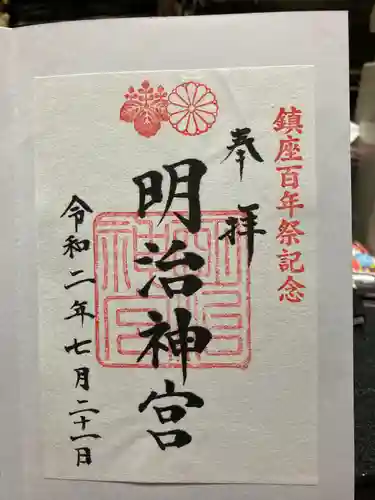 鎮座百年祭記念
奉拝
明治神宮
令和二年七月二十一日